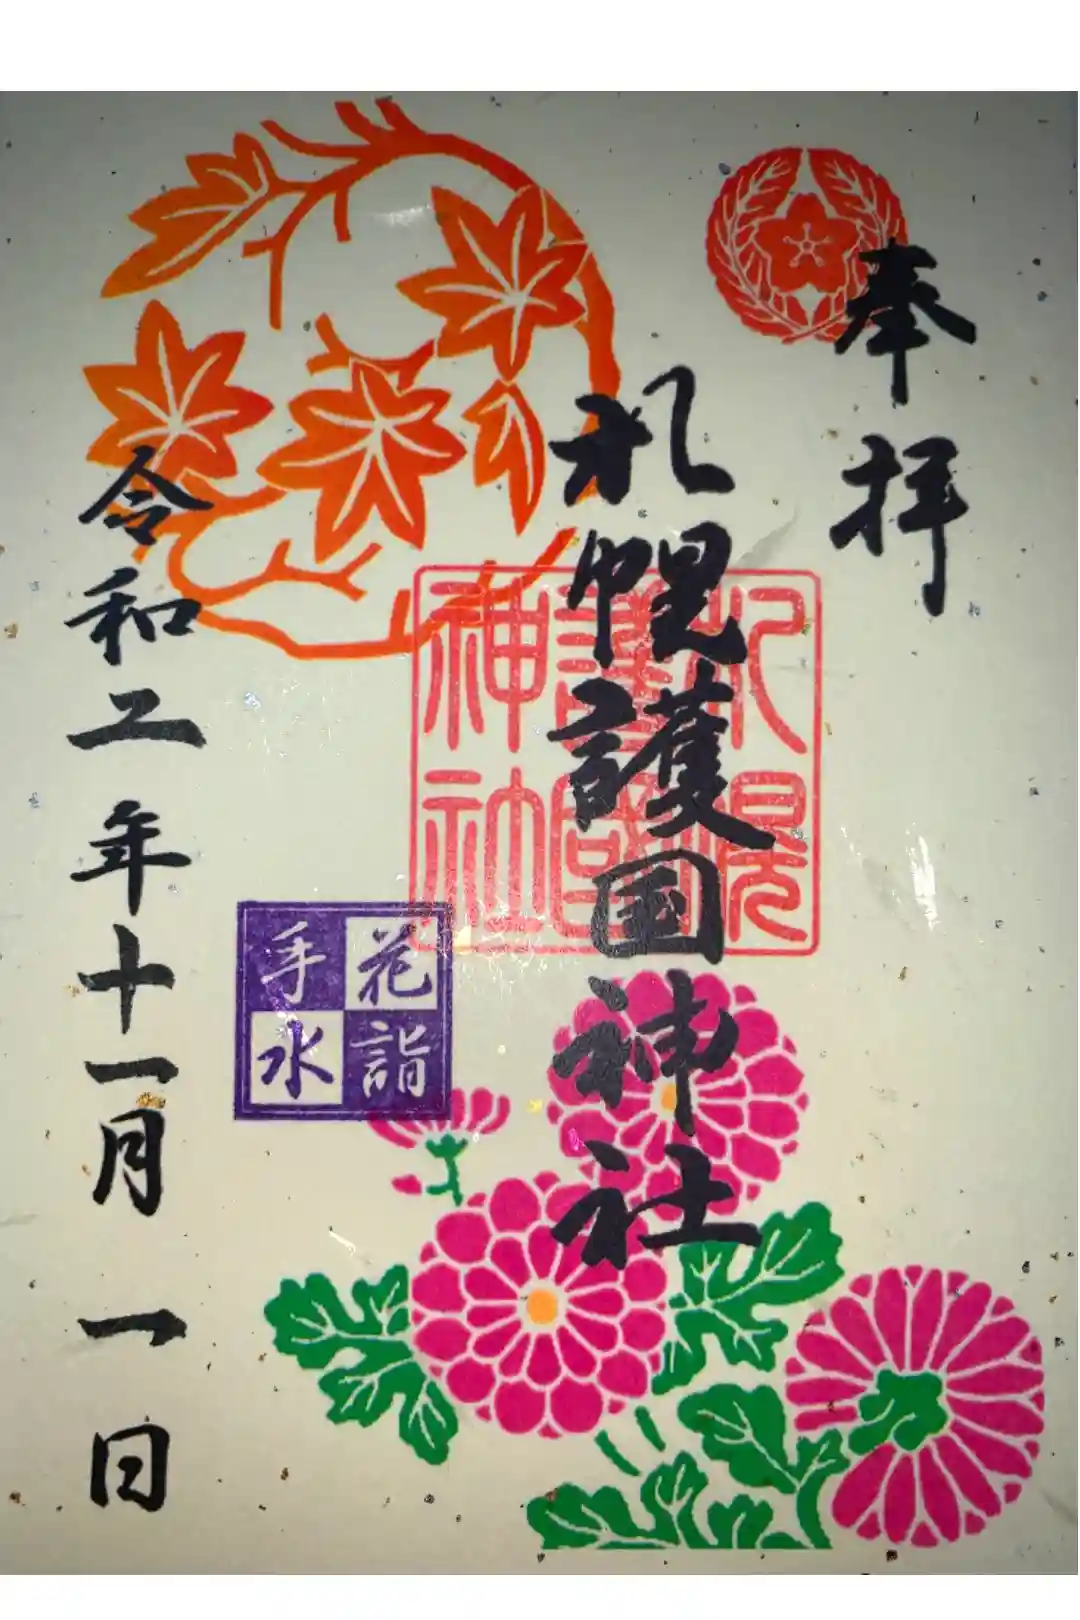 奉拝
札幌護国神社
札幌
護国
神社
花詣
手水
令和二年十一月一日